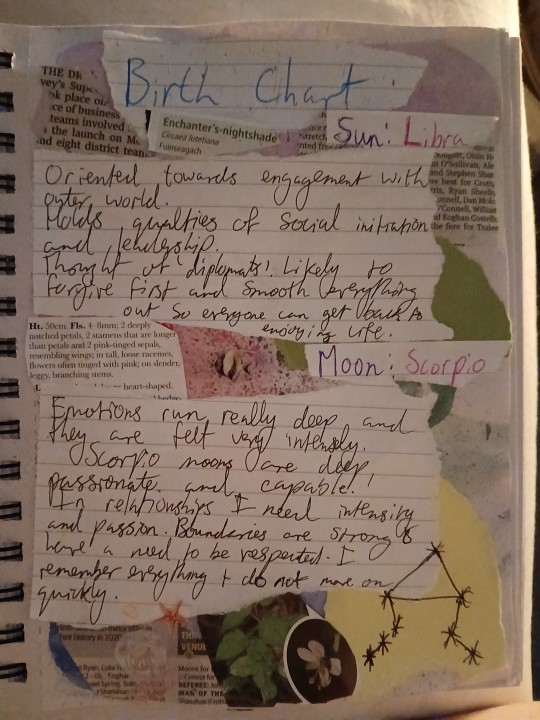 Birth Chart
THE
vey's Supe
ok place o
ce of business
teams involved
the launch on M
and eight district team
Enchanter's-nightshade
Circaea lutetiana
Fuinseagach
Sun: Libra
O'Sullivan, Ale
and Stephen Shar
Ryan Sheeh
onnell, Dan Molo
O'Connell, Willia
nd Eoghan Costell
the fore for Tralee
Oriented towards engagement with
outer world.
Holds qualities of social initiation
and leadership.
Thought of 'diplomats'. Likely to
forgive first and smooth everything
out so everyone can get back to
enjoying life.
Ht. 50cm. Fls. 4–8mm; 2 deeply
notched petals, 2 stamens that are longer
than petals and 2 pink-tinged sepals,
resembling wings; in tall, loose racemes,
flowers often tinged with pink; on slender,
leggy, branching stems.
heart-shaped.
Moon: Scorpio
Emotions run really deep and
they are felt very intensely.
Scorpio moons are deep,
passionate and capable!
In relationships I need intensity
and passion. Boundaries are strong &
have a need to be respected. I
remember everything + do not move on
quickly.
heir history in 2020
THI
VENU
Ryan, Luke
el Spring, Sub
Shanahan
Moore for
Connor for
REFEREE: Joh
MAN OF THE
Shanahan